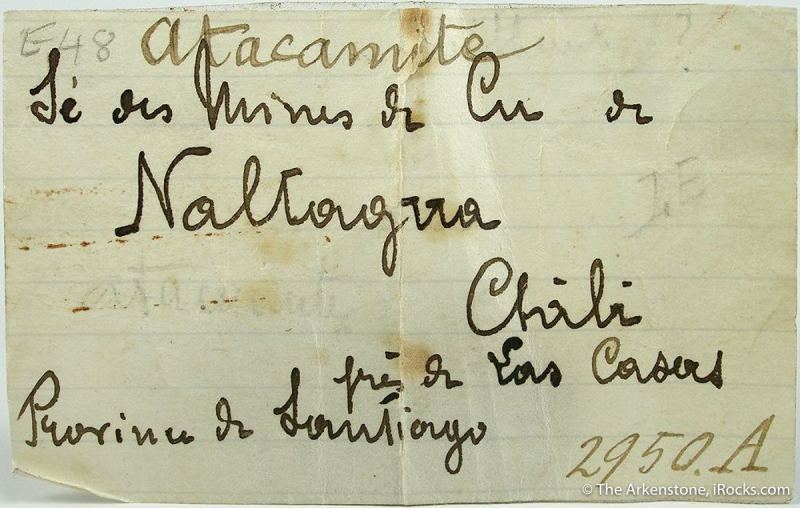 E48 Atacamite
Sé des Mines de Cu de
Naltagua
IE
atacamite
Chili
près de Las Casas
Province de Santiago
2950.A
© The Arkenstone, iRocks.com